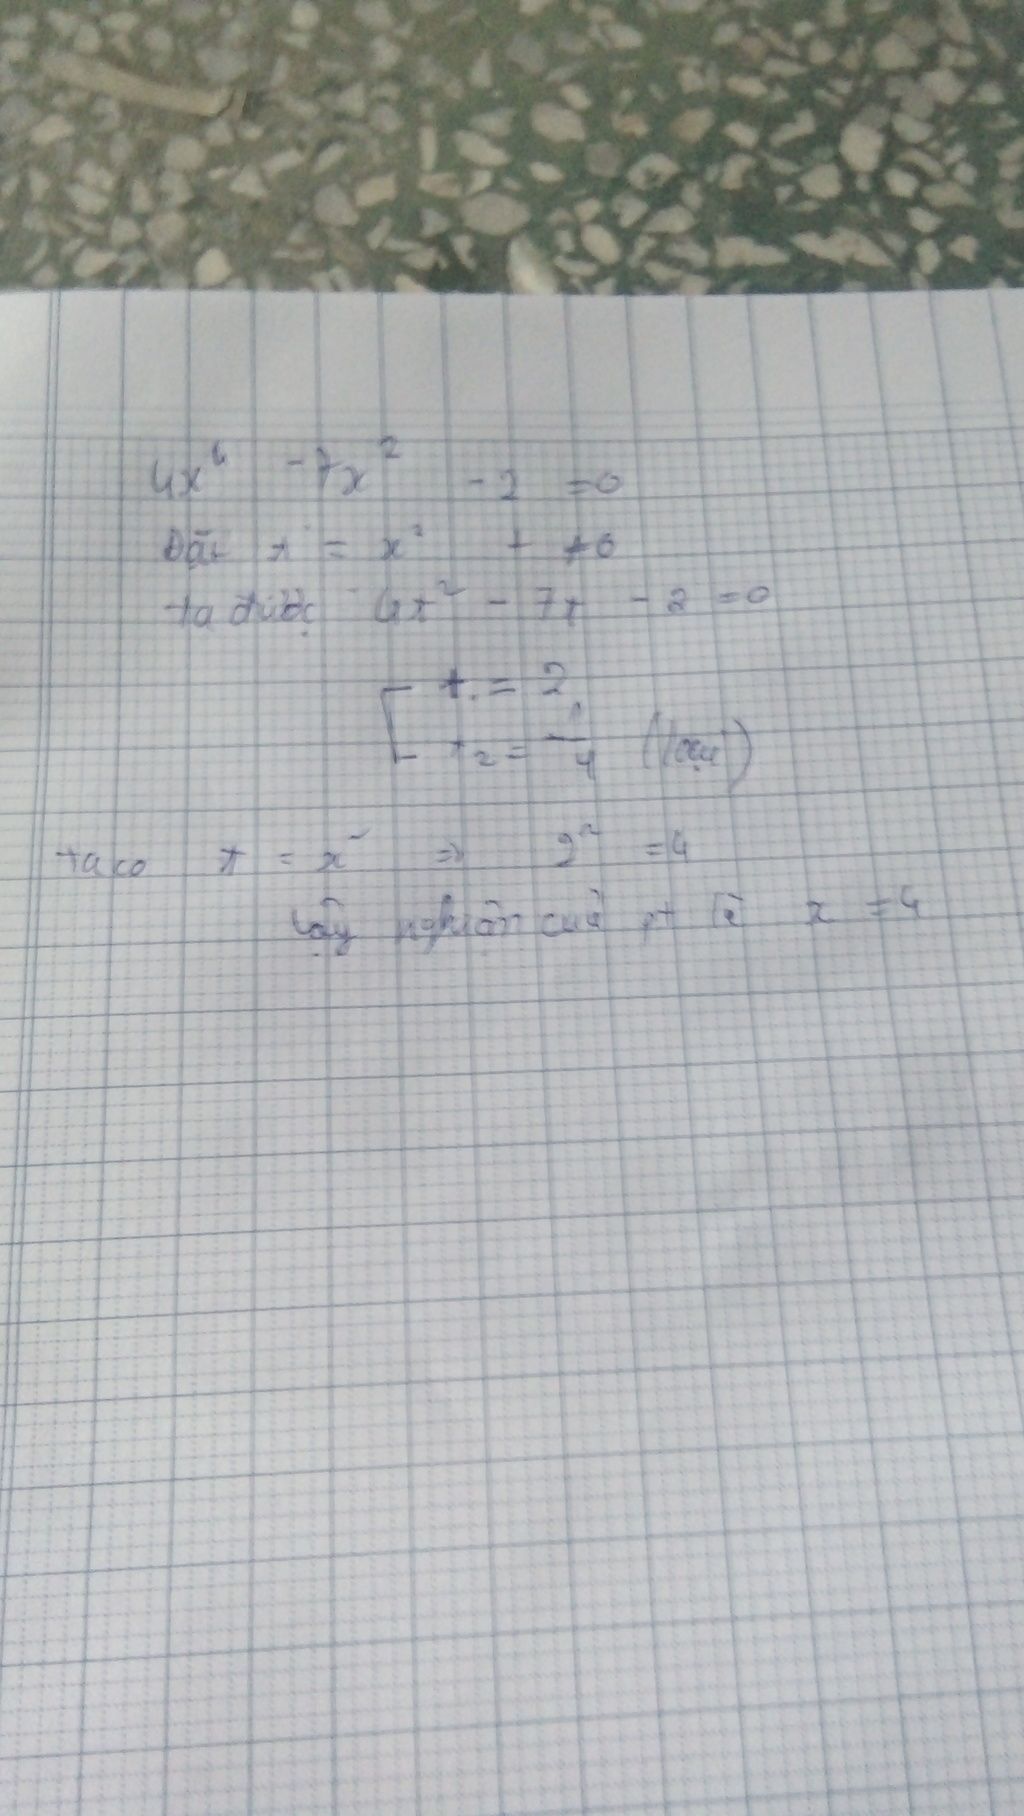 4x⁴ -7x² -2 =0
Đặt t = x² t ≠0
ta được 4t² - 7t - 2 =0
t₁ = 2
t₂ = -1/4 (loại)
ta co t = x² => 2² =4
Vậy nghiệm của pt là x =4